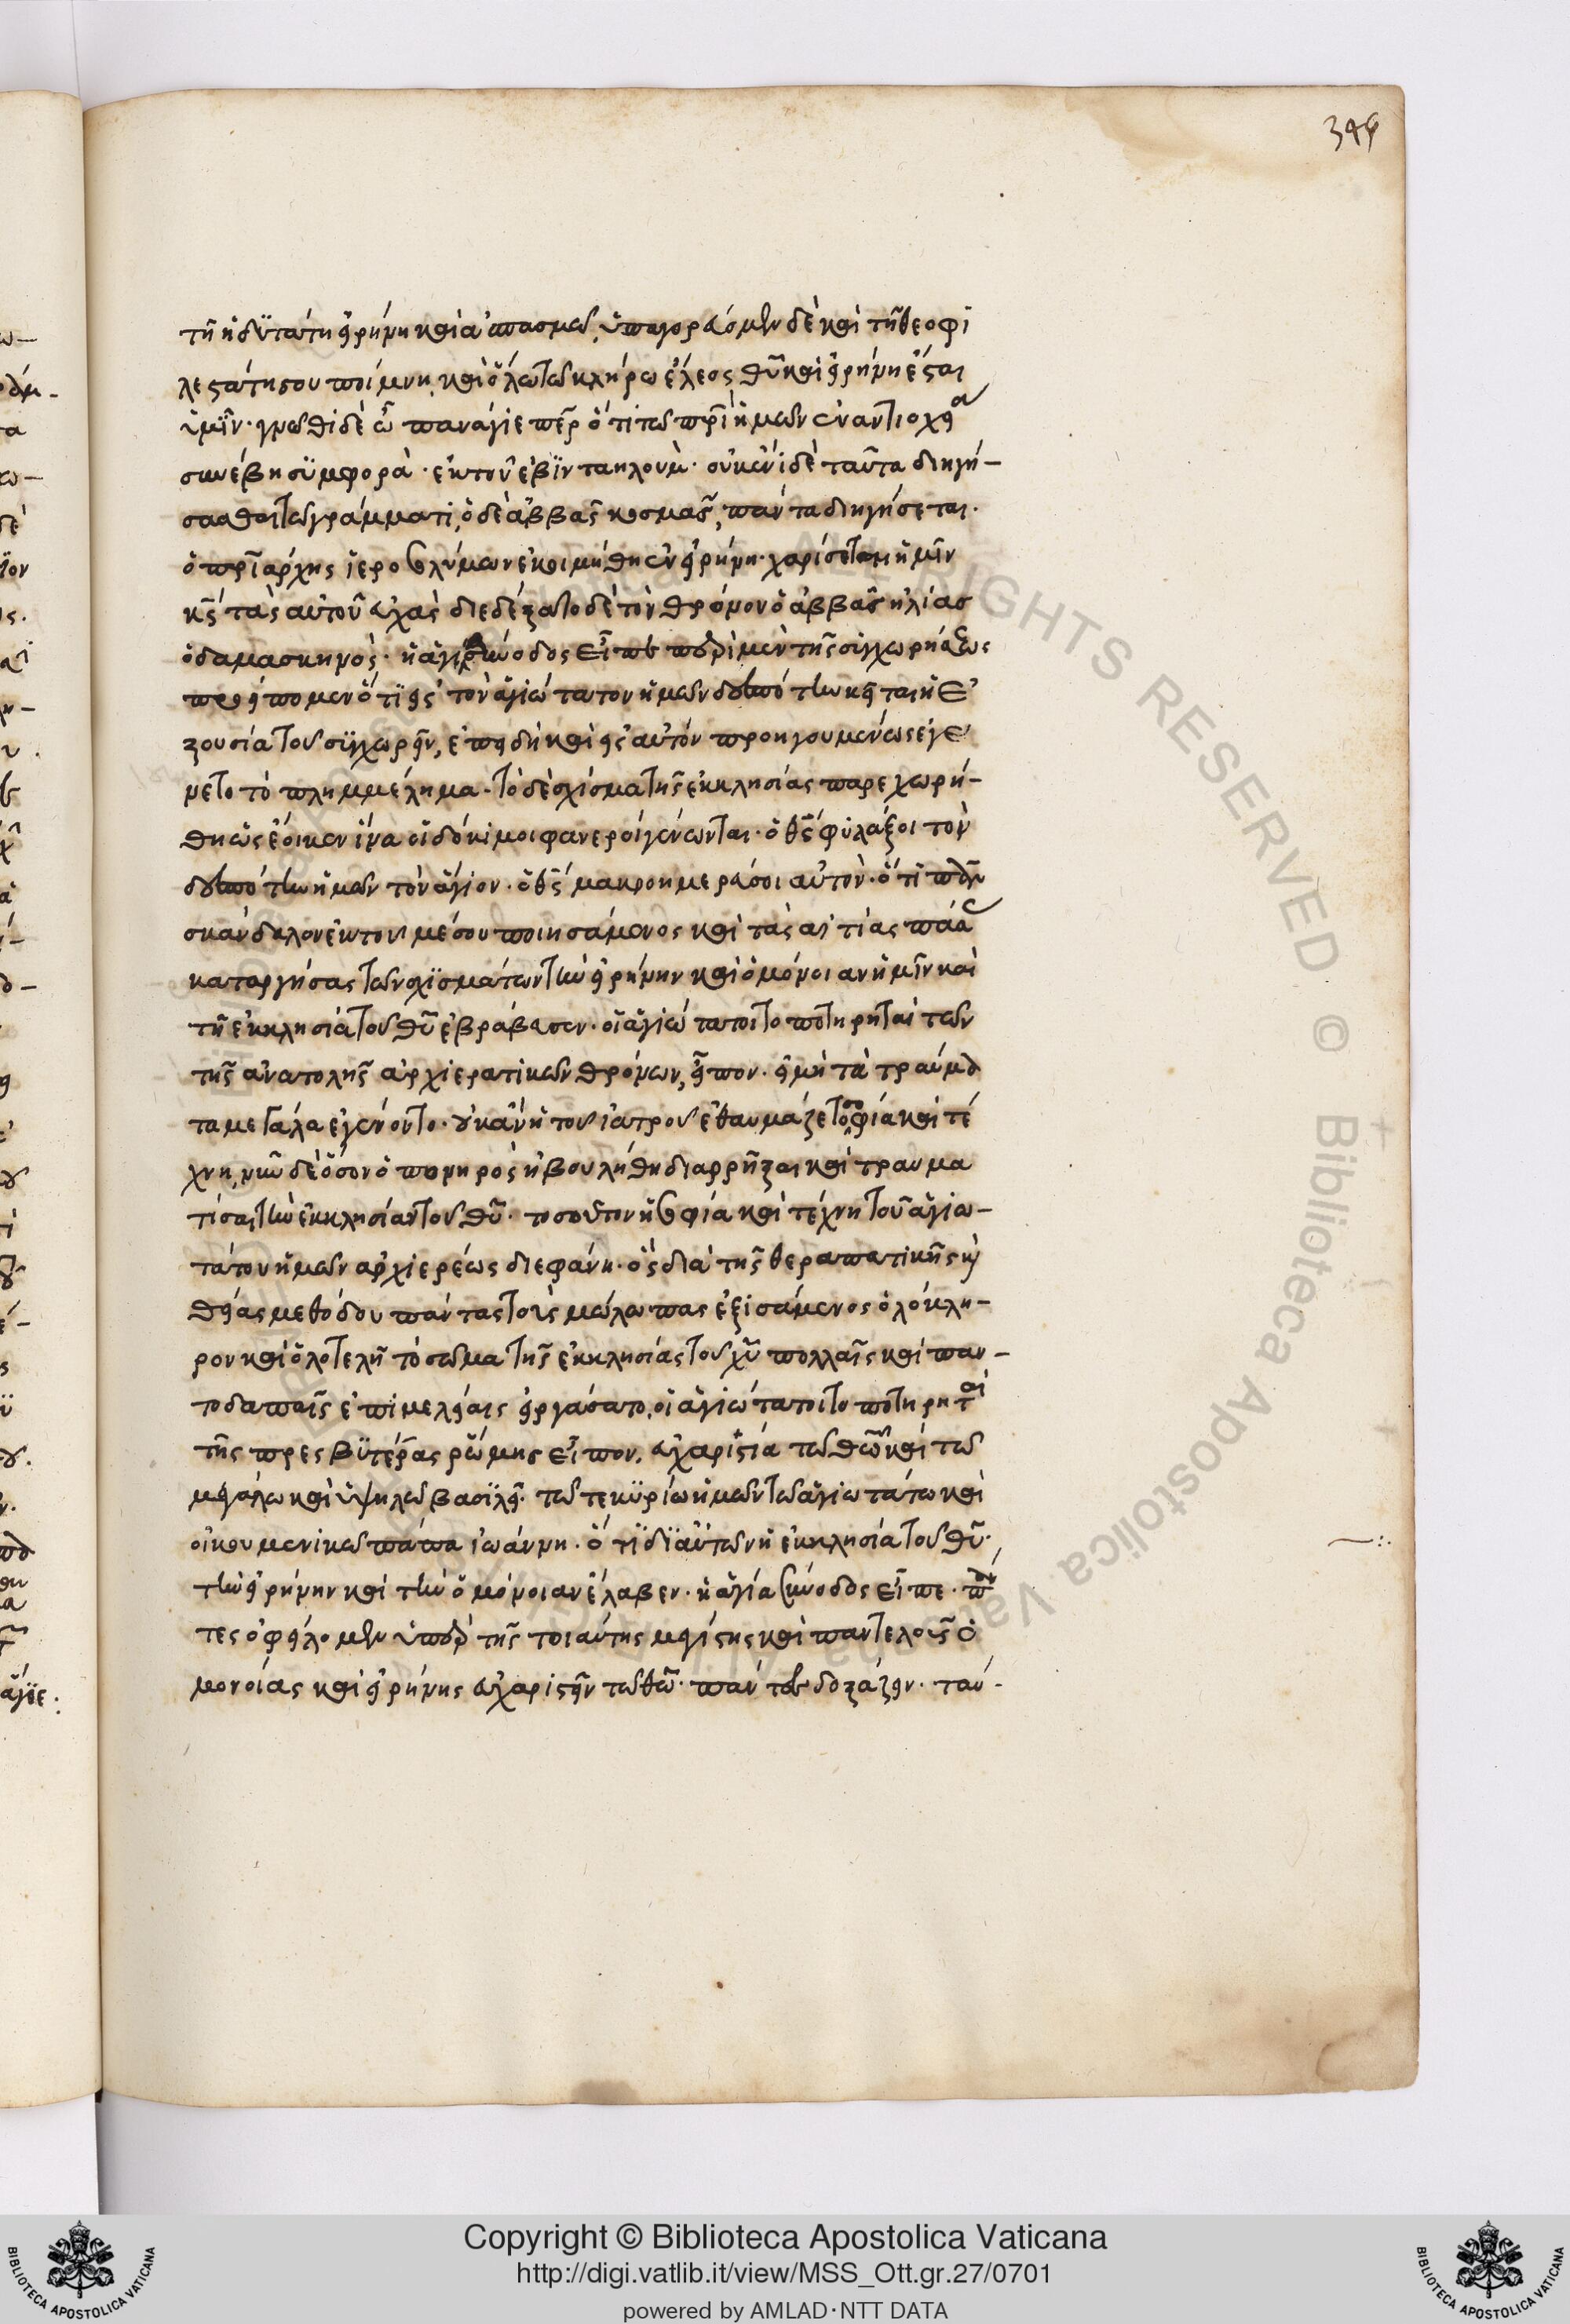 346
τῆ ἡδϋτάτη εἰρήνη καὶ ἀσπασμῶ, ὑπαγορεύομεν δὲ καὶ τῆ θεοφι
λεστάτη σου ποίμνη, καὶ ὅλω τῶ κλήρω ἔλεος θῦ καὶ εἰρήνη ἔσται
ὑμῖν· γνῶθι δὲ ὦ παναγίε περ ὅτι τῶ πρῖ ἡμῶν ἐν ἀντιοχεία
συνέβη σϋμφορὰ· ἐκ τοῦ ἐβῒν ταηλουμ· οὐκ ἔνι δὲ ταῦτα διηγή-
σασθαι τῶ γράμματι, ὁ δὲ ἀββᾶς κοσμᾶς, πάντα διηγήσεται·
ὁ πρῖάρχης ἱεροσολύμων ἐκοιμήθη ἐν εἰρήνη· χαρίσεται ἡμῖν
κς τὰς αὐτοῦ εὐχὰς διεδέξατο δὲ τὸν θρόνον ὁ ἀββᾶς ἠλίας
ὁ δαμασκηνὸς· ἡ ἁγία σύνοδος εἶπεν περὶ μὲν τῆς συγχωρήσεως
προείπομεν ὅτϊ εἰς τὸν ἁγιώτατον ἡμῶν δεσπότην κεῖται ἡ ἐ
ξουσία τοῦ συγχωρεῖν, ἐπειδὴ καὶ εἰς αὐτόν προηγουμένως ἐγέ
νετο τὸ πλημμέλημα· τὸ δὲ σχίσμα τῆς ἐκκλησίας παρεχωρή-
θη ὡς ἔοικεν ἵνα οἱ δόκιμοι φανεροί γένωνται· ὁ θς φυλάξοι τὸν
δεσπότην ἡμῶν τὸν ἅγιον· ὁ θς μακροημερεύσοι αὐτὸν· ὅτι πᾶν
σκάνδαλον ἐκ τοῦ μέσου ποιησάμενος καὶ τὰς αἰτίας πάσας
καταργήσας τῶν σχϊσμάτων τὴν εἰρήνην καὶ ὁμόνοιαν ἡμῖν καὶ
τῆ ἐκκλησία τοῦ θῦ ἐβράβευσεν· οἱ ἁγιώτατοι τοποτηρηταὶ τῶν
τῆς ἀνατολῆς ἀρχιερατικῶν θρόνων, εἶπον· εἰ μὴ τὰ τραύμα
τα μεγάλα ἐγένοντο· οὐκ ἂν ἡ τοῦ ἰατροῦ ἐθαυμάζετο σοφία καὶ τέ
χνη, νῦν δὲ ὅσον ὁ πονηρὸς ἠβουλήθη διαρρῆξαι καὶ τραυμα
τίσαι τὴν ἐκκλησίαν τοῦ θῦ· τοσοῦτον ἡ σοφία καὶ τέχνη τοῦ ἁγιω-
τάτου ἡμῶν ἀρχιερέως διεφάνη· ὃς διὰ τῆς θεραπευτικῆς καὶ
θείας μεθόδου πάντας τοὺς μώλωπας ἐξισάμενος ὁλόκλη-
ρον καὶ ὁλοτελῆ τὸ σῶμα τῆς ἐκκλησίας τοῦ χῦ πολλαῖς καὶ παν-
τοδαπαῖς ἐπιμελείαις εἰργάσατο, οἱ ἁγιώτατοι τοποτηρηταὶ
τῆς πρεσβϋτέρας ῥώμης εἶπον, εὐχαριστία τῶ θῶ καὶ τῶ
μεγάλω καὶ ὑψηλῶ βασιλεῖ· τῶ τε κϋρίω ἡμῶν τῶ ἁγιωτάτω καὶ
οἰκουμενικῶ πάπα ἰωάννη· ὅτϊ δϊ αὐτῶν ἡ ἐκκλησία τοῦ θῦ·
τὴν εἰρήνην καὶ τὴν ὁμόνοιαν ἔλαβεν· ἡ ἁγία σύνοδος εἶπε· πάν
τες ὀφείλομεν ὑπὲρ τῆς τοιαύτης μεγίστης καὶ παντελοῦς ὁ
μονοίας καὶ εἰρήνης εὐχαριστεῖν τῶ θῶ· πάντοτε δοξάζειν· ταύ-
ALL RIGHTS RESERVED © Biblioteca Apostolica Vaticana
Copyright © Biblioteca Apostolica Vaticana
http://digi.vatlib.it/view/MSS_Ott.gr.27/0701
powered by AMLAD·NTT DATA
BIBLIOTECA APOSTOLICA VATICANA
BIBLIOTECA APOSTOLICA VATICANA